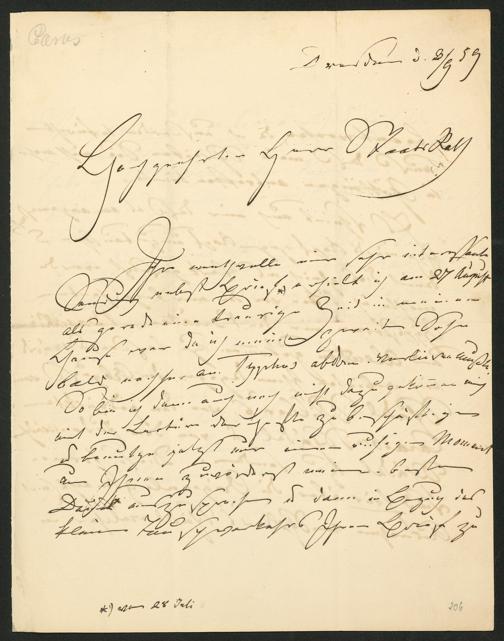 Carus
Dresden d. 2/9 59
Hochgeehrter Herr Staats Rath
Ihre werthvolle mir sehr interessante
Sendung nebst Brief *) erhielt ich am 27 August
als gerade eine traurige Zeit in meinem
Hause war da ich meinen zweiten Sohn
bald nachher am Typhus
So bin ich denn auch noch nicht dazu gekommen mich
mit der Lectüre der Hefte zu beschäftigen
& benutze jetzt nur einen ruhigen Moment
um Ihnen zuvörderst meinen besten
Dank auszusprechen & dann in Bezug des
kleinen Tauschverkehrs Ihren Brief zu
*) vom 28 Juli
206